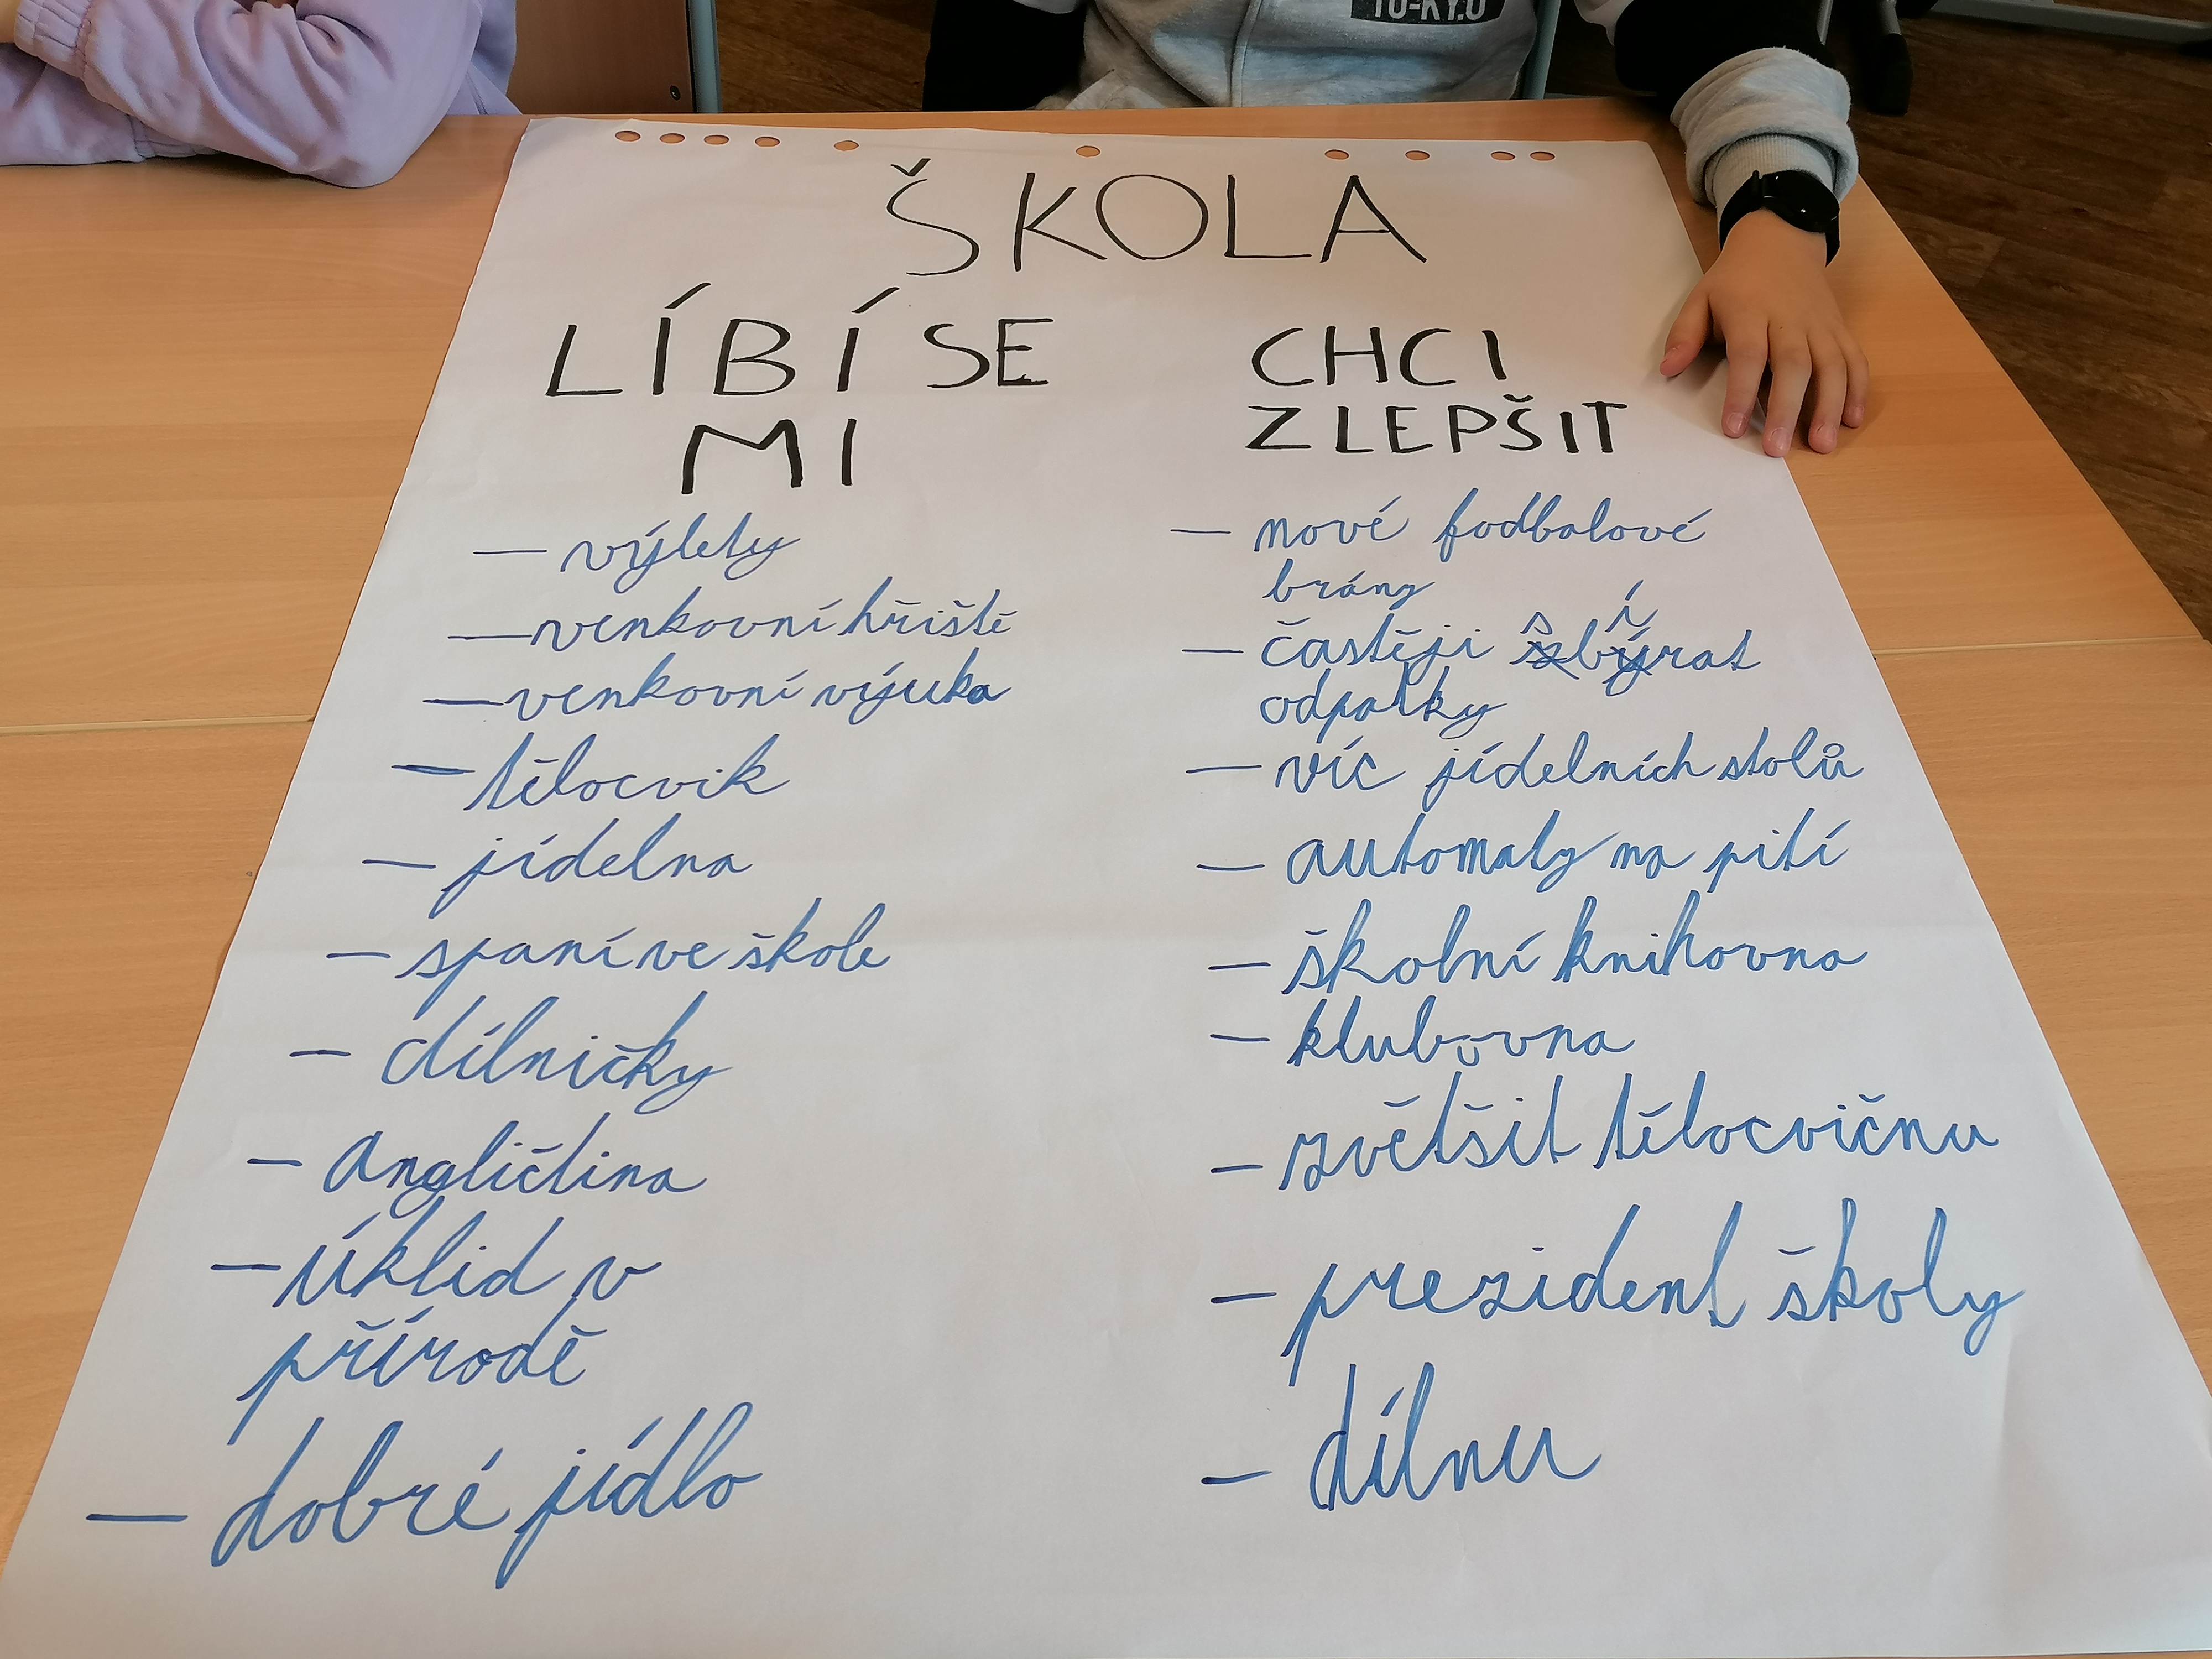 TO-KY.O
ŠKOLA
LÍBÍ SE
MI
— výlety
— venkovní hřiště
— venkovní výuka
— tělocvik
— jídelna
— spaní ve škole
— dílničky
— angličtina
— úklid v
přírodě
— dobré jídlo
CHCI
ZLEPŠIT
— nové fodbalové
brány
— častěji sbírat
odpatky
— víc jídelních stolů
— automaty na pití
— školní knihovna
— klubovna
— zvětšit tělocvičnu
— prezident školy
— dílnu